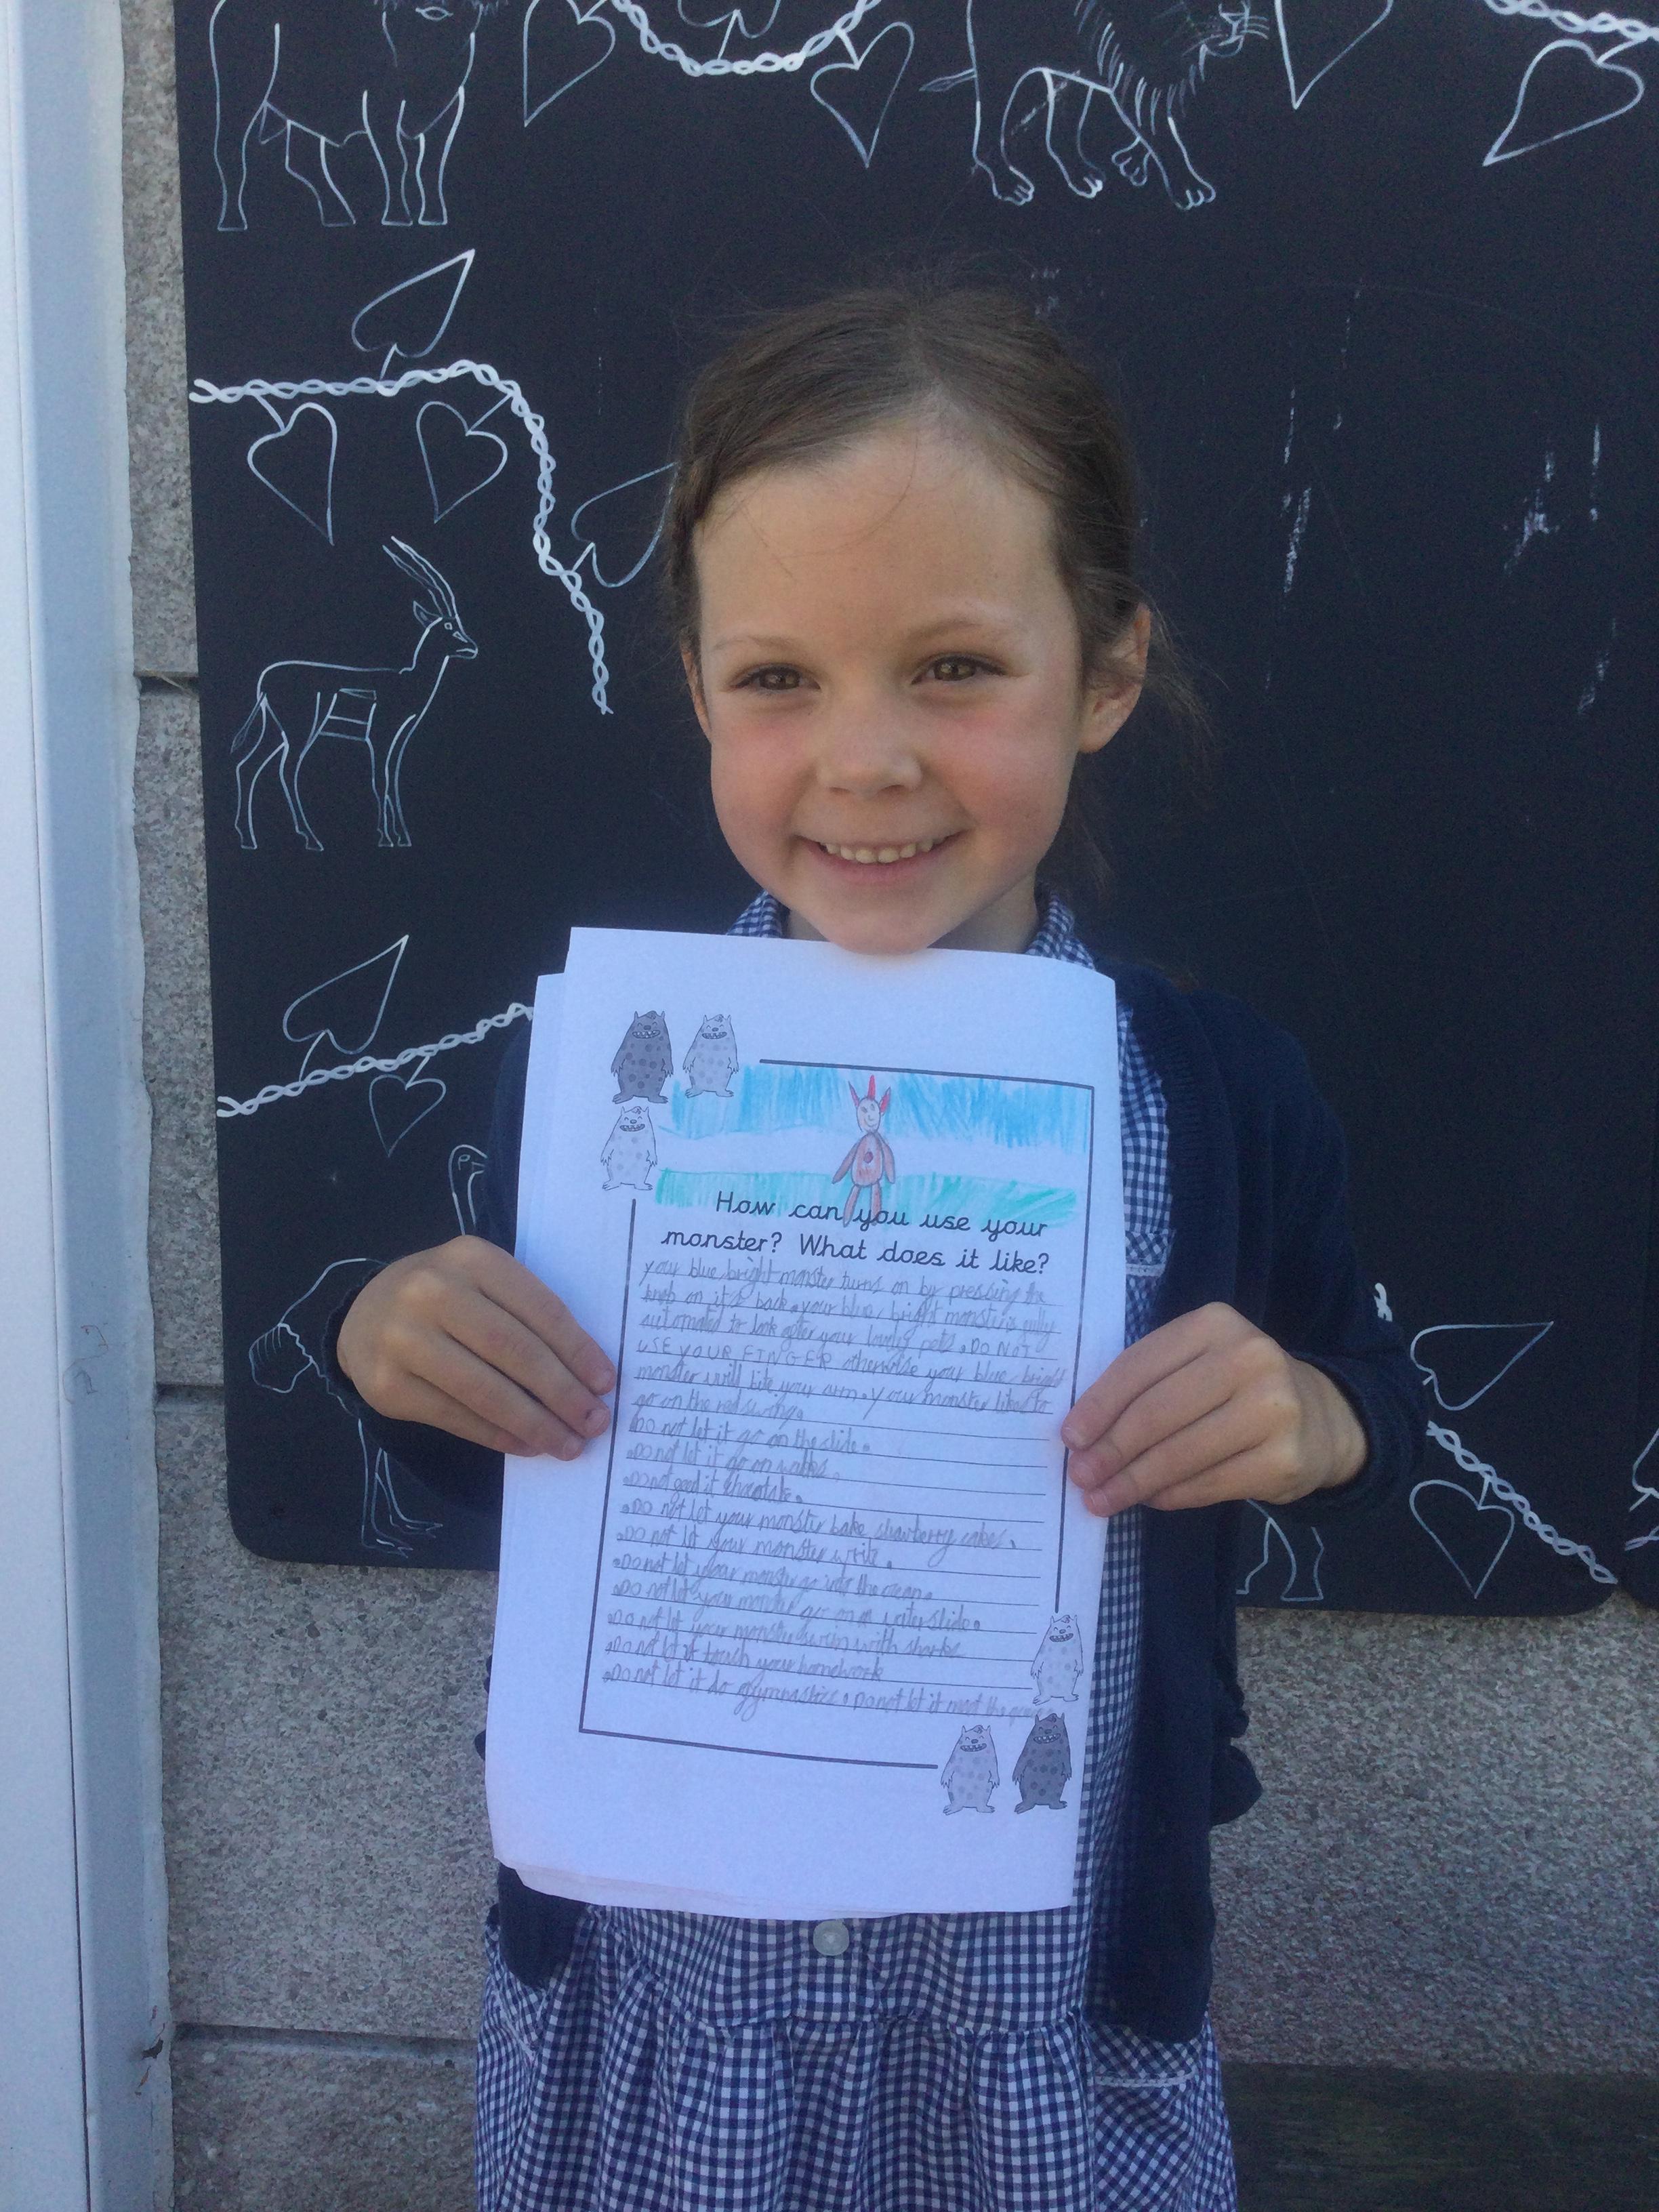 How can you use your
monster? What does it like?
your blue, bright monster turns on by pressing the
knob on it's back. your blue, bright monster is fully
automated to look after your lovely pets. DO NOT
USE YOUR FINGER otherwise your blue, bright
monster will bite your arm. Your monster likes to
go on the red swing.
•Do not let it go on the slide.
•Do not let it go on
•Do not feed it
•Do not let your monster bake strawberry cakes.
•Do not let your monster write.
•Do not let your monster go into the ocean.
•Do not let your monster go on a waterslide.
•Do not let your monster swim with sharks
•Do not let it touch your homework
•Do not let it do gymnastics. Do not let it meet the